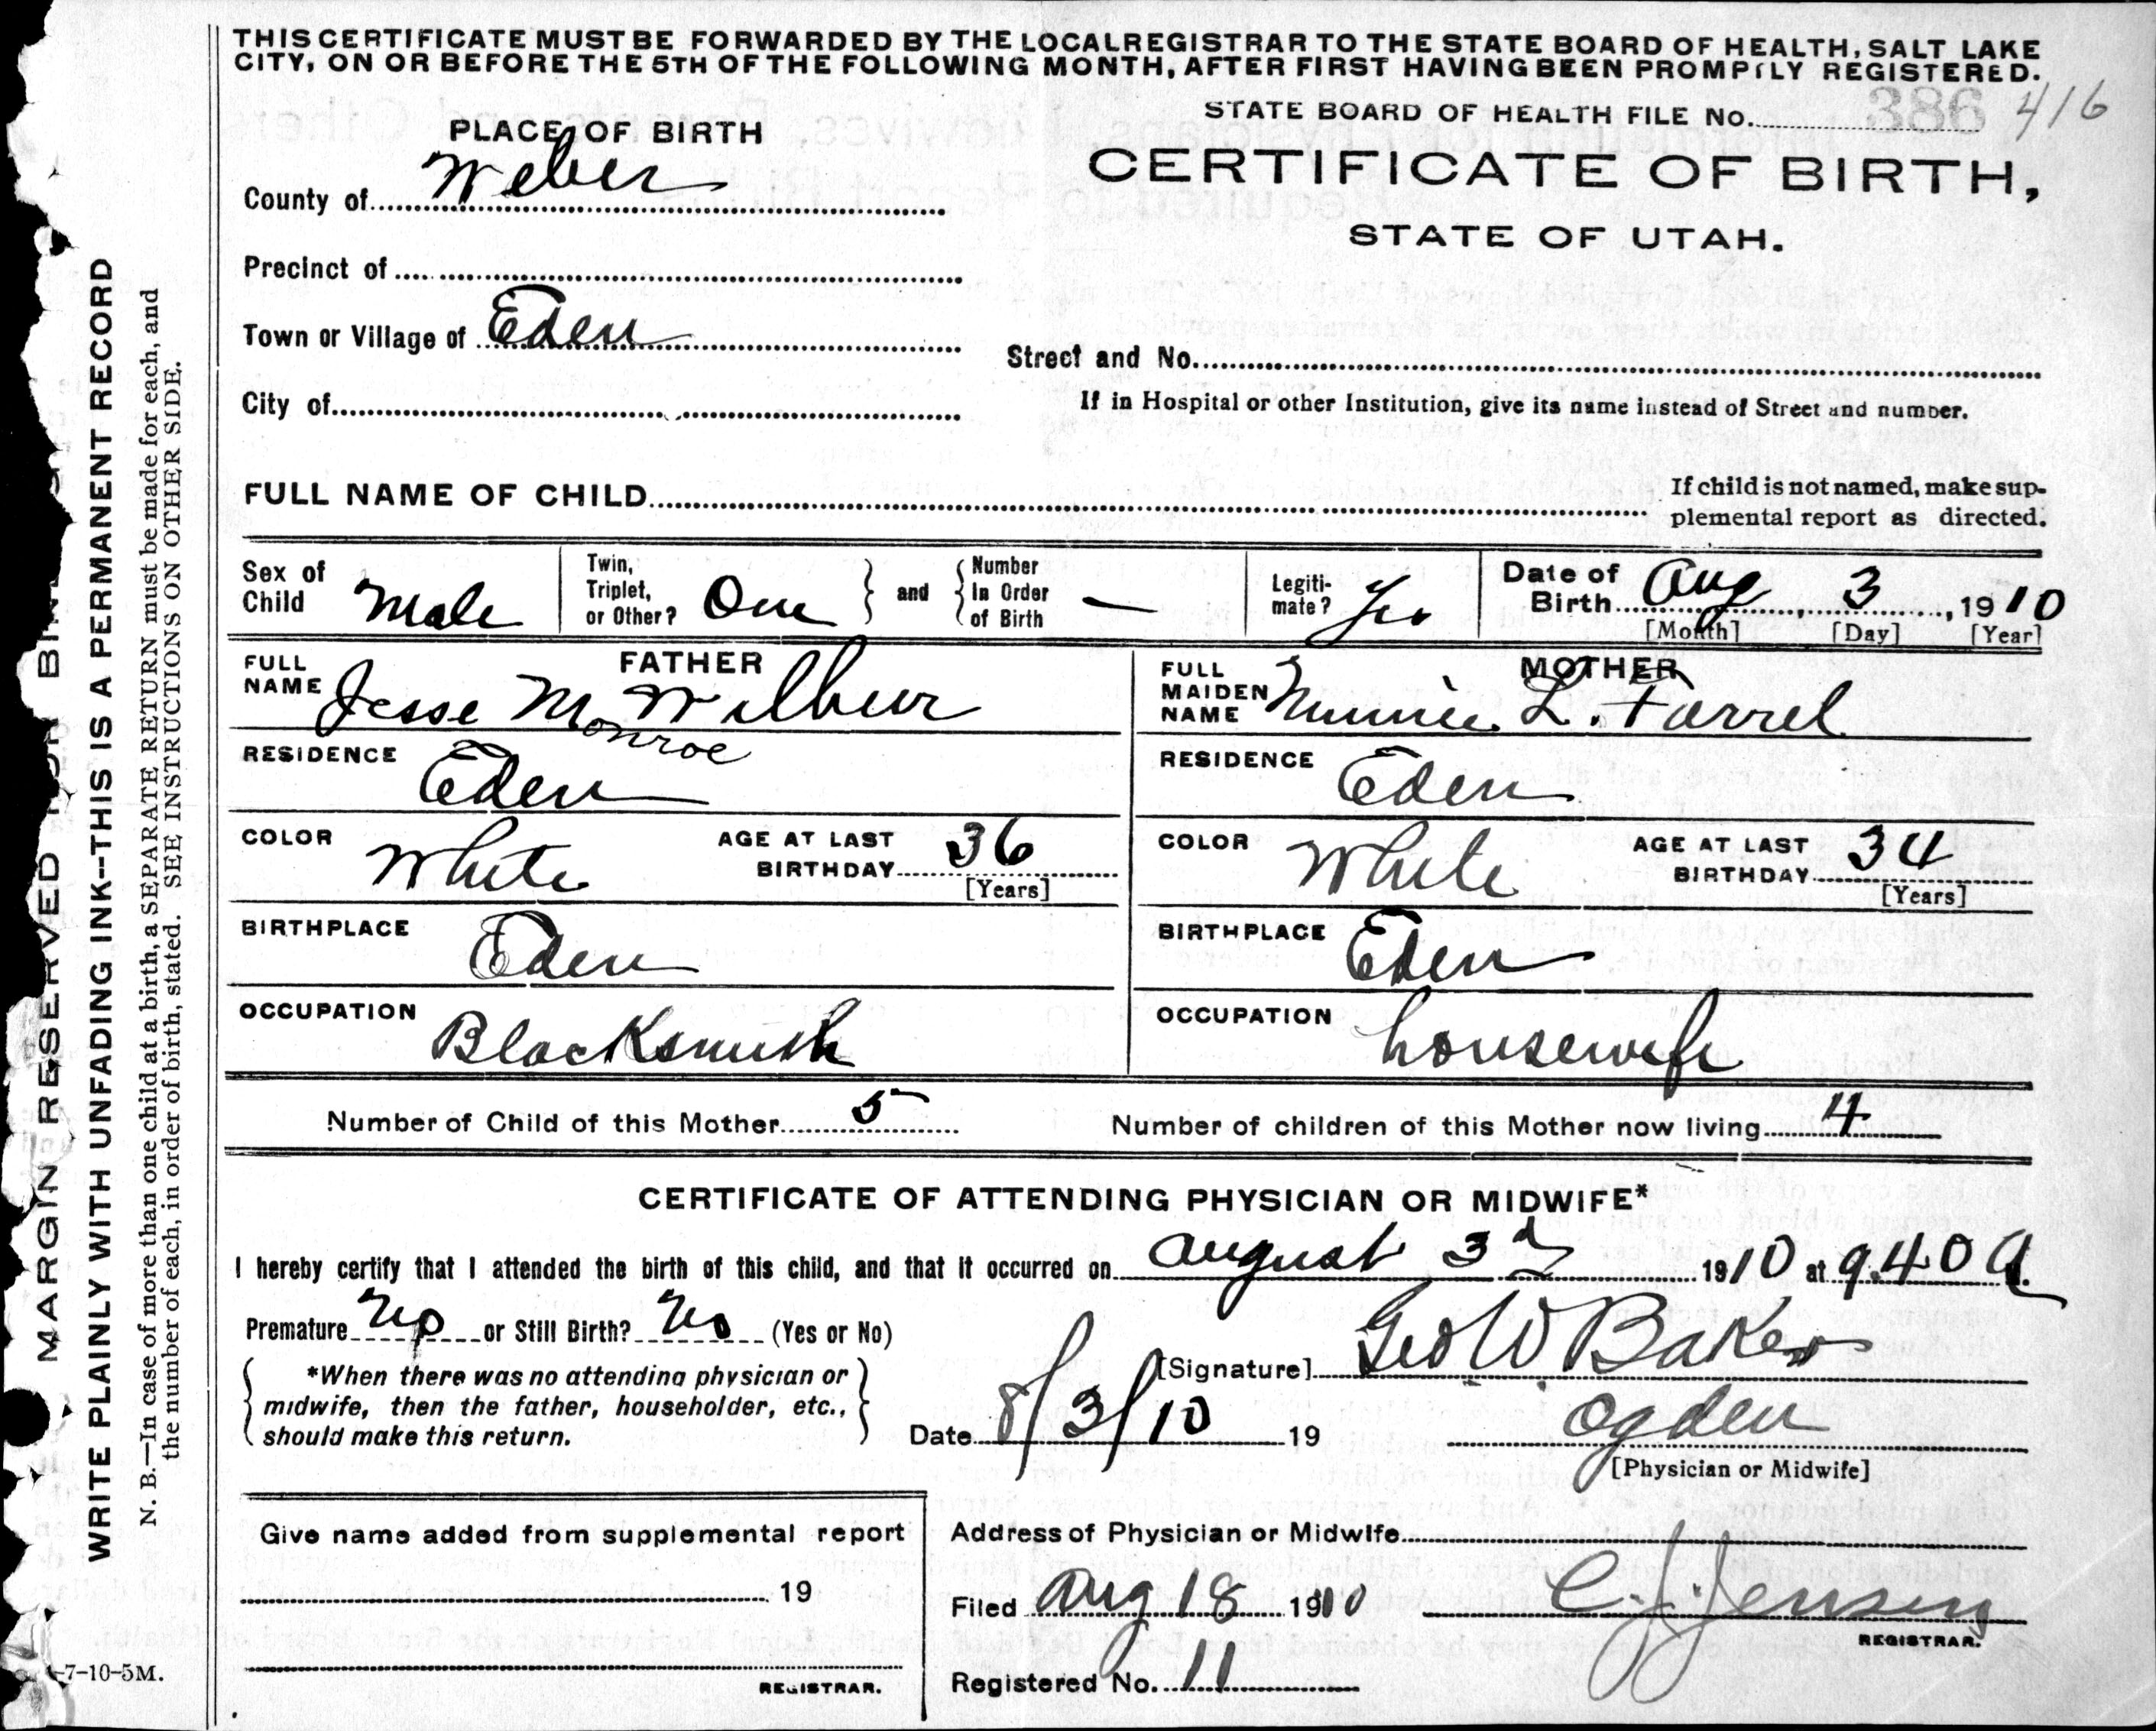 THIS CERTIFICATE MUST BE FORWARDED BY THE LOCAL REGISTRAR TO THE STATE BOARD OF HEALTH, SALT LAKE
CITY, ON OR BEFORE THE 5TH OF THE FOLLOWING MONTH, AFTER FIRST HAVING BEEN PROMPTLY REGISTERED.
STATE BOARD OF HEALTH FILE No. 386 416
PLACE OF BIRTH
CERTIFICATE OF BIRTH,
STATE OF UTAH.
County of Weber
Precinct of
Town or Village of Eden
Street and No.
City of
If in Hospital or other Institution, give its name instead of Street and number.
FULL NAME OF CHILD
If child is not named, make sup-
plemental report as directed.
Sex of Child Male
Twin, Triplet, or Other? One
and
Number In Order of Birth —
Legiti-mate? Yes
Date of Birth Aug, 3, 1910
[Month] [Day] [Year]
FATHER
FULL NAME Jesse M. Wilbur
Monroe
RESIDENCE Eden
COLOR White
AGE AT LAST BIRTHDAY 36
[Years]
BIRTHPLACE Eden
OCCUPATION Blacksmith
MOTHER
FULL MAIDEN NAME Minnie L. Farrel
RESIDENCE Eden
COLOR White
AGE AT LAST BIRTHDAY 34
[Years]
BIRTHPLACE Eden
OCCUPATION housewife
Number of Child of this Mother 5
Number of children of this Mother now living 4
CERTIFICATE OF ATTENDING PHYSICIAN OR MIDWIFE*
I hereby certify that I attended the birth of this child, and that it occurred on August 3d 1910 at 9.40 A.
Premature No or Still Birth? No (Yes or No)
*When there was no attending physician or
midwife, then the father, householder, etc.,
should make this return.
[Signature] Geo W Baker
Date 8/3/10 19
Ogden
[Physician or Midwife]
Give name added from supplemental report
19
REGISTRAR.
Address of Physician or Midwife
Filed Aug 18 1910
C. J. Jensen
REGISTRAR.
Registered No. 11
7-10-5M.
MARGIN RESERVED
WRITE PLAINLY WITH UNFADING INK--THIS IS A PERMANENT RECORD
N. B.—In case of more than one child at a birth, a SEPARATE RETURN must be made for each, and
the number of each, in order of birth, stated. SEE INSTRUCTIONS ON OTHER SIDE.